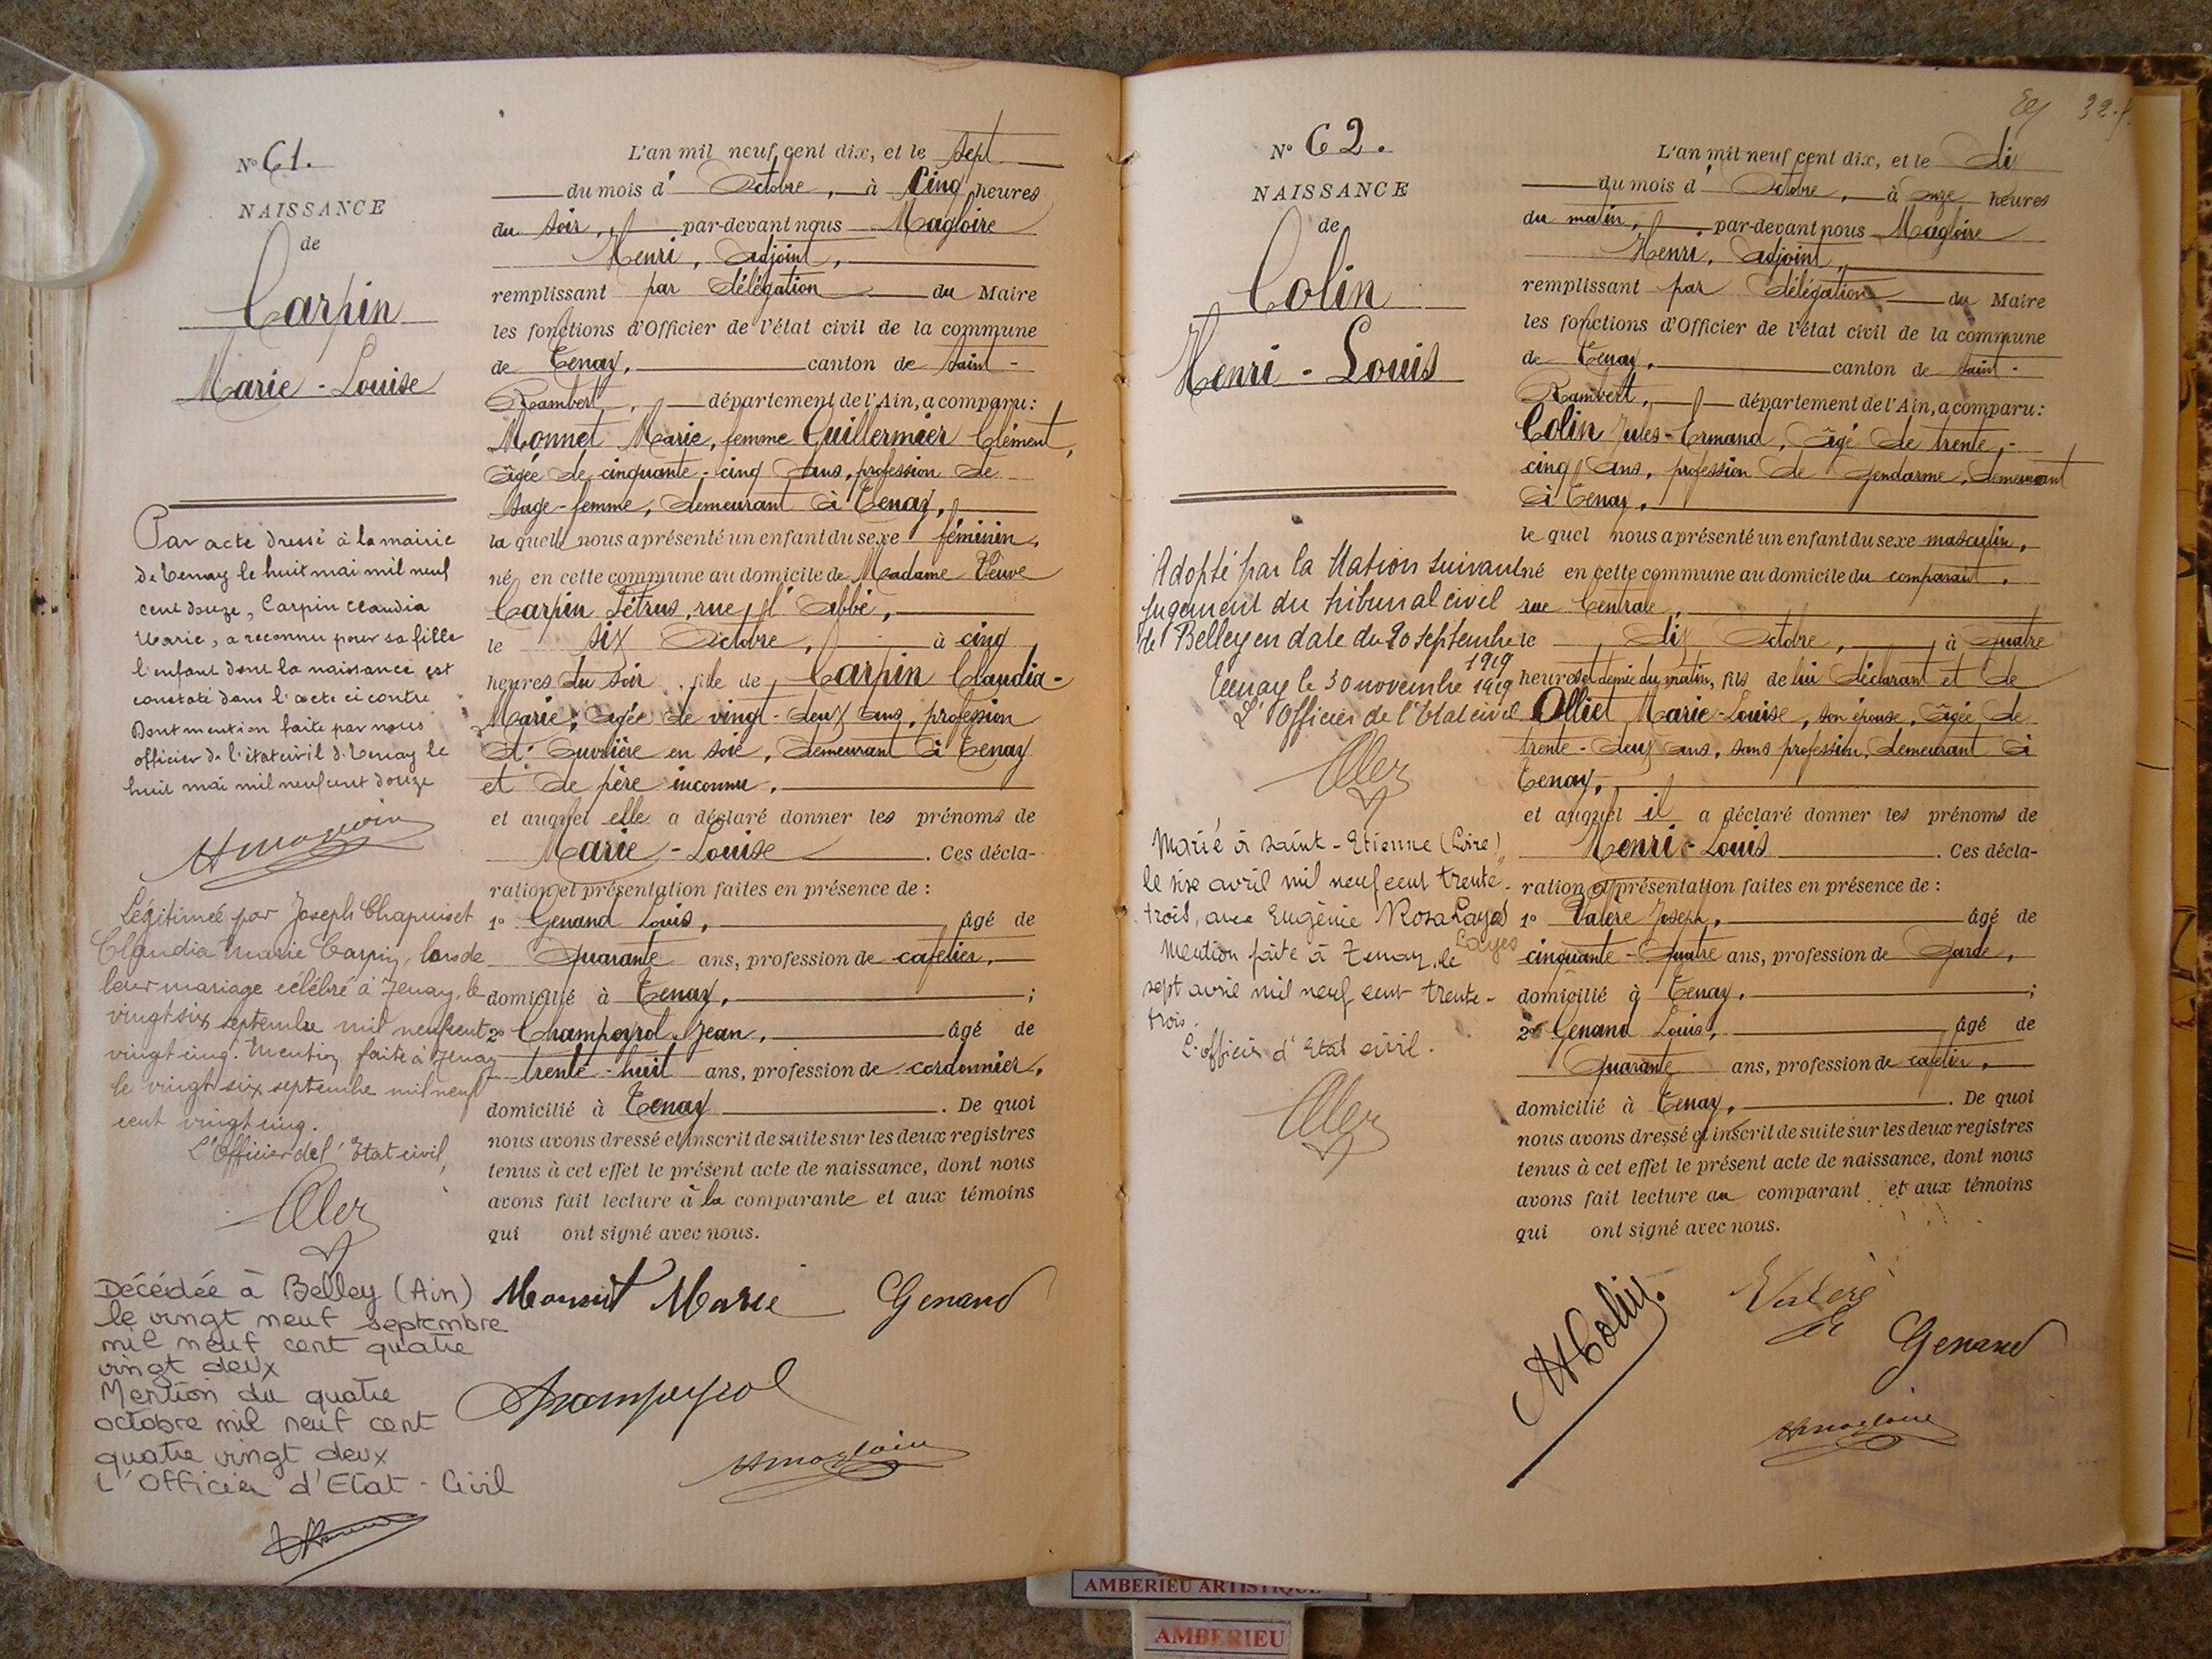 N° 61.
NAISSANCE
de
Carpin
Marie - Louise
Par acte dressé à la mairie
de Tenay le huit mai mil neuf
cent douze, Carpin Claudia
Marie, a reconnu pour sa fille
l'enfant dont la naissance est
constaté dans l'acte ci contre
Dont mention faite par nous
officier de l'état civil de Tenay le
huit mai mil neuf cent douze
Hmagloire
Légitimée par Joseph Chapuis et
Claudia Marie Carpin, lors de
leur mariage célébré à Tenay, le
vingt six septembre mil neuf cent
vingt cinq. Mention faite à Tenay
le vingt six septembre mil neuf
cent vingt cinq.
L'Officier de l'Etat civil,
Décédée à Belley (Ain)
le vingt neuf septembre
mil neuf cent quatre
vingt deux
Mention du quatre
octobre mil neuf cent
quatre vingt deux
L'Officier d'Etat - Civil
L'an mil neuf cent dix, et le sept
du mois d' Octobre, à Cinq heures
du soir, par-devant nous Magloire
Henri, adjoint,
remplissant par délégation du Maire
les fonctions d'Officier de l'état civil de la commune
de Tenay, canton de Saint -
Rambert, département de l'Ain, a comparu :
Monnet Marie, femme Guillermier Clément,
âgée de cinquante - cinq ans, profession de
sage - femme, demeurant à Tenay,
la quelle nous a présenté un enfant du sexe féminin,
né en cette commune au domicile de Madame Veuve
Carpin Pétrus, rue l'Abbé,
le six Octobre, à cinq
heures du soir, fille de Carpin Claudia -
Marie, âgée de vingt - deux ans, profession
d'ouvrière en soie, demeurant à Tenay
et de père inconnu,
et auquel elle a déclaré donner les prénoms de
Marie - Louise . Ces décla-
ration et présentation faites en présence de :
1° Genand Louis, âgé de
Quarante ans, profession de cafetier,
domicilié à Tenay, ;
2° Champeyrol Jean, âgé de
trente - huit ans, profession de cordonnier,
domicilié à Tenay . De quoi
nous avons dressé et inscrit de suite sur les deux registres
tenus à cet effet le présent acte de naissance, dont nous
avons fait lecture à la comparante et aux témoins
qui ont signé avec nous.
Monnet Marie Genand
Champeyrol
Hmagloire
32
N° 62.
NAISSANCE
de
Colin
Henri - Louis
Adopté par la Nation suivant
jugement du tribunal civil
de Belley en date du 20 septembre
1919
Tenay le 30 novembre 1919
L'Officier de l'Etat civil
Marié à Saint - Etienne (Loire),
le six avril mil neuf cent trente -
trois, avec Eugénie Rosa Layes
Layes
Mention faite à Tenay, le
sept avril mil neuf cent trente -
trois.
L'officier d'Etat civil.
L'an mil neuf cent dix, et le dix
du mois d' Octobre, à onze heures
du matin, par-devant nous Magloire
Henri, adjoint,
remplissant par délégation du Maire
les fonctions d'Officier de l'état civil de la commune
de Tenay, canton de Saint -
Rambert, département de l'Ain, a comparu :
Colin Jules - Ermand, âgé de trente -
cinq ans, profession de gendarme, demeurant
à Tenay,
le quel nous a présenté un enfant du sexe masculin,
né en cette commune au domicile du comparant,
rue Centrale,
le dix Octobre, à quatre
heures et demie du matin, fils de lui déclarant et de
Olliet Marie - Louise, son épouse, âgée de
trente - deux ans, sans profession, demeurant à
Tenay,
et auquel il a déclaré donner les prénoms de
Henri - Louis . Ces décla-
ration et présentation faites en présence de :
1° Valère Joseph, âgé de
cinquante - quatre ans, profession de Garde,
domicilié à Tenay, ;
2° Genand Louis, âgé de
Quarante ans, profession de cafetier,
domicilié à Tenay, . De quoi
nous avons dressé et inscrit de suite sur les deux registres
tenus à cet effet le présent acte de naissance, dont nous
avons fait lecture au comparant et aux témoins
qui ont signé avec nous.
Colin
Valère
Genand
Hmagloire
AMBERIEU ARTISTIQUE
AMBERIEU